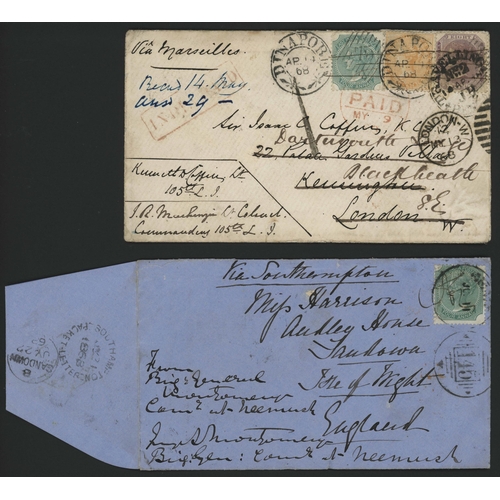 Via Marseilles
DINAPORE
AP 14
68
DINAPORE
AP
68
Recd 14 May
ansd 29 -
PAID
MY 9
LONDON-W
MY
68
Sir Isaac Coffin, K.C.
Dartmouth
22
Blackheath
Kensington
S.E.
London W.
Kenneth D Coffin, Lt
105th L.I.
J.R. Mackenzie Lt Colonel
Commanding 105th L.I.
Via Southampton
Miss Harrison
Audley House
Sandown
Isle of Wight
England
From
Brig: General
Montgomery
Comg at Neemuch
Montgomery
Brig: Gen: Comg at Neemuch
SOUTHAMPTON
PACKET-LETTER
SANDOWN
B